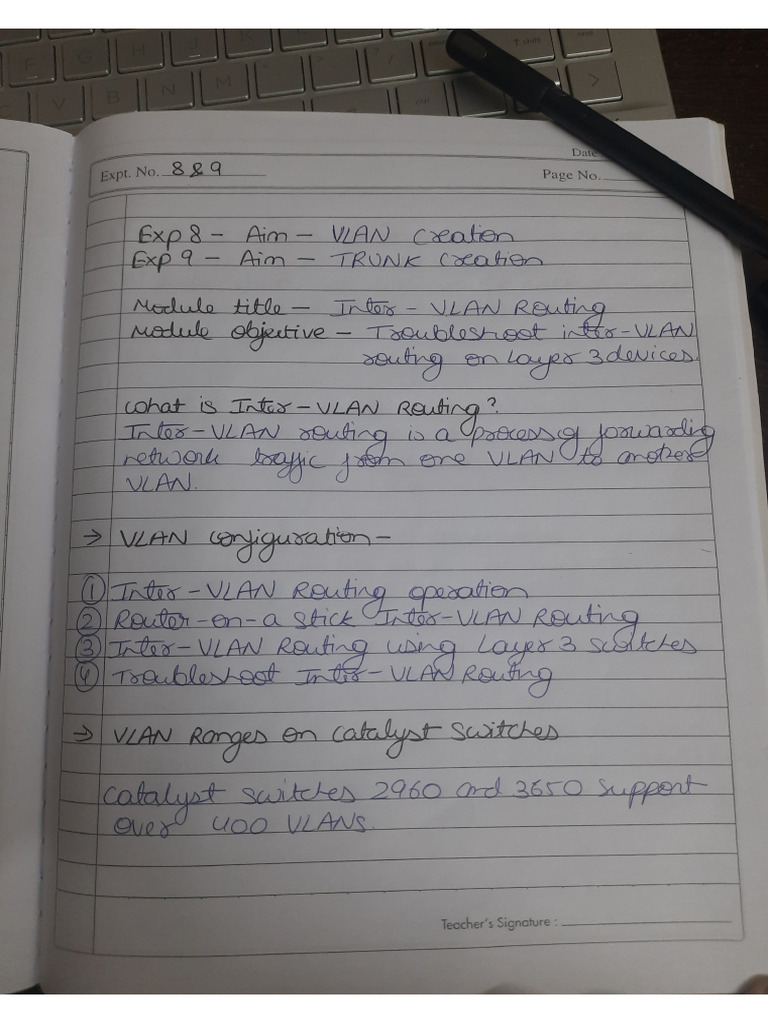 Date
Expt. No. 8 & 9
Page No.
Exp 8 - Aim - VLAN Creation
Exp 9 - Aim - TRUNK Creation
Module title - Inter - VLAN Routing
Module objective - Troubleshoot inter-VLAN
routing on Layer 3 devices.
What is Inter-VLAN Routing?
Inter-VLAN routing is a process of forwarding
network traffic from one VLAN to another
VLAN.
→ VLAN configuration -
① Inter-VLAN Routing operation
② Router-on-a stick Inter-VLAN Routing
③ Inter-VLAN Routing using Layer 3 switches
④ Troubleshoot Inter-VLAN Routing
→ VLAN Ranges on Catalyst Switches
Catalyst switches 2960 and 3650 support
over 400 VLANS.
Teacher's Signature :